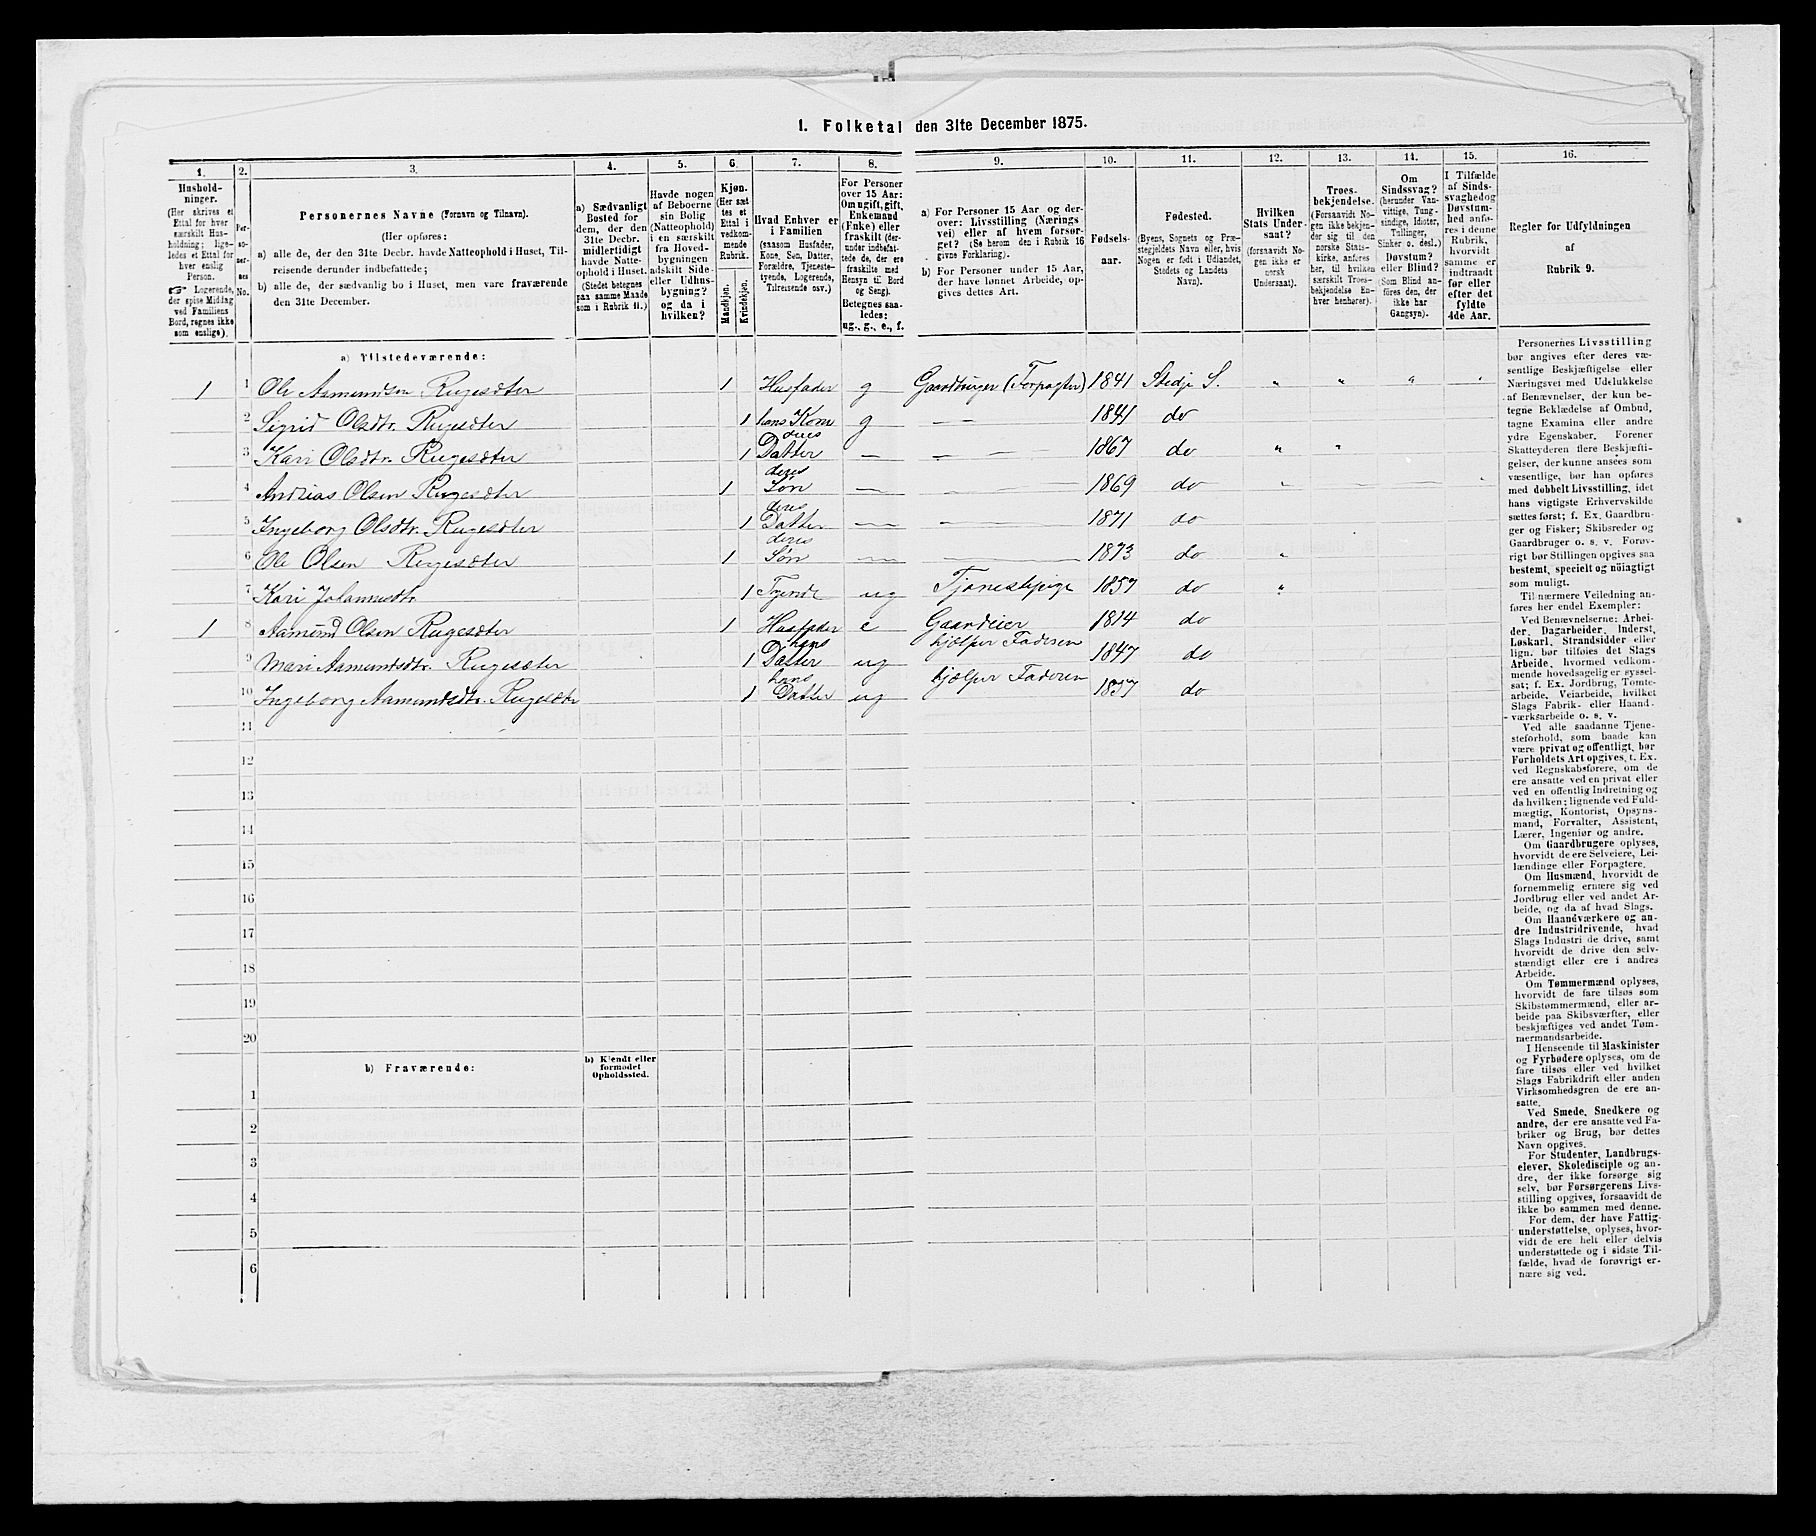 1. Folketal den 31te December 1875.
1. 2. 3. 4. 5. 6. 7. 8. 9. 10. 11. 12. 13. 14. 15. 16.
Hushold-
ninger.
(Her skrives et
Ettal for hver
særskilt Hus-
holdning; lige-
ledes et Ettal for
hver enslig
Person.
☞ Logerende,
der spise Middag
ved Familiens
Bord, regnes ikke
som enslige).
Per-
so-
ner-
nes
No.
Personernes Navne (Fornavn og Tilnavn).
(Her opføres:
a) alle de, der den 31te Decbr. havde Natteophold i Huset, Til-
reisende derunder indbefattede;
b) alle de, der sædvanlig bo i Huset, men vare fraværende
den 31te December.
a) Sædvanligt
Bosted for
dem, der den
31te Decbr.
midlertidigt
havde Natte-
ophold i Huset.
(Stedet betegnes
paa samme Maade
som i Rubrik 11.)
Havde nogen
af Beboerne
sin Bolig
(Natteophold)
i en særskilt
fra Hoved-
bygningen
adskilt Side-
eller Udhus-
bygning?
og da i
hvilken?
Kjøn.
(Her sæt-
tes et
Ettal i
vedkom-
mende
Rubrik.
Mandkjøn.
Kvindekjøn.
Hvad Enhver er
i Familien
(saasom Husfader,
Kone, Søn, Datter,
Forældre, Tjeneste-
tyende, Logerende,
Tilreisende osv.)
For Personer
over 15 Aar:
Om ugift, gift,
Enkemand
(Enke) eller
fraskilt (der-
under indbefat-
tede de, der ere
fraskilte med
Hensyn til Bord
og Seng).
Betegnes saa-
ledes:
ug., g., e., f.
a) For Personer 15 Aar og der-
over: Livsstilling (Nærings
vei) eller af hvem forsør-
get? (Se herom den i Rubrik 16
givne Forklaring).
b) For Personer under 15 Aar,
der have lønnet Arbeide, op-
gives dettes Art.
Fødsels-
aar.
Fødested.
(Byens, Sognets og Præ-
stegjeldets Navn eller, hvis
Nogen er født i Udlandet,
Stedets og Landets
Navn).
Hvilken
Stats Under-
saat?
(forsaavidt No-
gen ikke er
norsk
Undersaat).
Troes-
bekjendelse.
(Forsaavidt No-
gen ikke bekjen-
der sig til den
norske Stats-
kirke, anføres
her, til hvilken
særskilt Troes-
bekjendelse En-
hver henhører).
Om
Sindssvag?
(herunder Van-
vittige, Tung-
sindige, Idioter,
Tullinger,
Sinker o. desl.)
Døvstum?
eller Blind?
(Som Blind an-
føres den, der
ikke har
Gangsyn).
I Tilfælde
af Sinds-
svaghed og
Døvstum-
hed anfø-
res i denne
Rubrik,
hvorvidt
samme er
indtraadt
før eller
efter det
fyldte
4de Aar.
Regler for Udfyldningen
af
Rubrik 9.
a) Tilstedeværende:
1 1 Ole Asmundsen Rugesæter 1 Husfader g Gaardbruger (Forpagter) 1841 Stedje S. " " " "
2 Sigrid Olsdtr. Rugesæter 1 hans Kone g — — 1841 do
3 Kari Olsdtr. Rugesæter 1 deres Datter — — — 1867 do " "
4 Andreas Olsen Rugesæter 1 deres Søn — — — 1869 do
5 Ingeborg Olsdtr. Rugesæter 1 deres Datter — — — 1871 do
6 Ole Olsen Rugesæter 1 deres Søn — — 1873 do "
7 Kari Johannesdtr. 1 Tyende ug Tjenestepige 1857 do "
1 8 Aamund Olsen Rugesæter 1 Husfader e Gaardeier 1814 do
9 Mari Aamundsdtr. Rugesæter 1 hans Datter ug hjælper Faderen 1847 do
10 Ingeborg Aamundsdtr. Rugesæter 1 hans Datter ug hjælper Faderen 1857 do
11
12
13
14
15
16
17
18
19
20
b) Fraværende:
b) Kjendt eller
formodet
Opholdssted.
1
2
3
4
5
6
Personernes Livsstilling
bør angives efter deres væ-
sentlige Beskjæftigelse eller
Næringsvei med Udelukkelse
af Benævnelser, der kun be-
tegne Beklædelse af Ombud,
tagne Examina eller andre
ydre Egenskaber. Forener
Skatteyderen flere Beskjæfti-
gelser, der kunne ansees som
væsentlige, bør han opføres
med dobbelt Livsstilling, idet
hans vigtigste Erhvervskilde
sættes først; f. Ex. Gaardbru-
ger og Fisker; Skibsreder og
Gaardbruger o. s. v. Forøv-
rigt bør Stillingen opgives saa
bestemt, specielt og nöiagtigt
som muligt.
Til nærmere Veiledning an-
føres her endel Exempler:
Ved Benævnelserne: Arbei-
der, Dagarbeider, Inderst,
Løskarl, Strandsidder eller
lign. bør tilføies det Slags
Arbeide, hvormed vedkom-
mende hovedsagelig er syssel-
sat; f. Ex. Jordbrug, Tomte-
arbeide, Veiarbeide, hvilket
Slags Fabrik- eller Haand-
værksarbeide o. s. v.
Ved alle saadanne Tjene-
steforhold, som baade kan
være privat og offentligt, bør
Forholdets Art opgives, t. Ex.
ved Regnskabsførere, om de
ere ansatte ved en privat eller
ved en offentlig Indretning og
da hvilken; lignende ved Fuld-
mægtig, Kontorist, Opsyns-
mand, Forvalter, Assistent,
Lærer, Ingeniør og andre.
Om Gaardbrugere oplyses,
hvorvidt de ere Selveiere, Lei-
lændinge eller Forpagtere.
Om Husmænd, hvorvidt de
fornemmelig ernære sig ved
Jordbrug eller ved andet Ar-
beide, og da af hvad Slags.
Om Haandværkere og an-
dre Industridrivende, hvad
Slags Industri de drive, samt
hvorvidt de drive den selv-
stændigt eller ere i andres
Arbeide.
Om Tømmermænd oplyses,
hvorvidt de fare tilsøs som
Skibstømmermænd, eller ar-
beide paa Skibsværfter, eller
beskjæftiges ved andet Tøm-
mermandsarbeide.
I Henseende til Maskinister
og Fyrbødere oplyses, om de
fare tilsøs eller ved hvilket
Slags Fabrikdrift eller anden
Virksomhedsgren de ere an-
satte.
Ved Smede, Snedkere og
andre, der ere ansatte ved Fa-
briker og Brug, bør dettes
Navn opgives.
For Studenter, Landbrugs-
elever, Skoledisciple og an-
dre, der ikke forsørge sig
selv, bør Forsørgerens Livs-
stilling opgives, forsaavidt de
ikke bo sammen med denne.
For dem, der have Fattig-
understøttelse, oplyses, hvor-
vidt de ere helt eller delvis
understøttede og i sidste Til-
fælde, hvad de forøvrigt er-
nære sig ved.